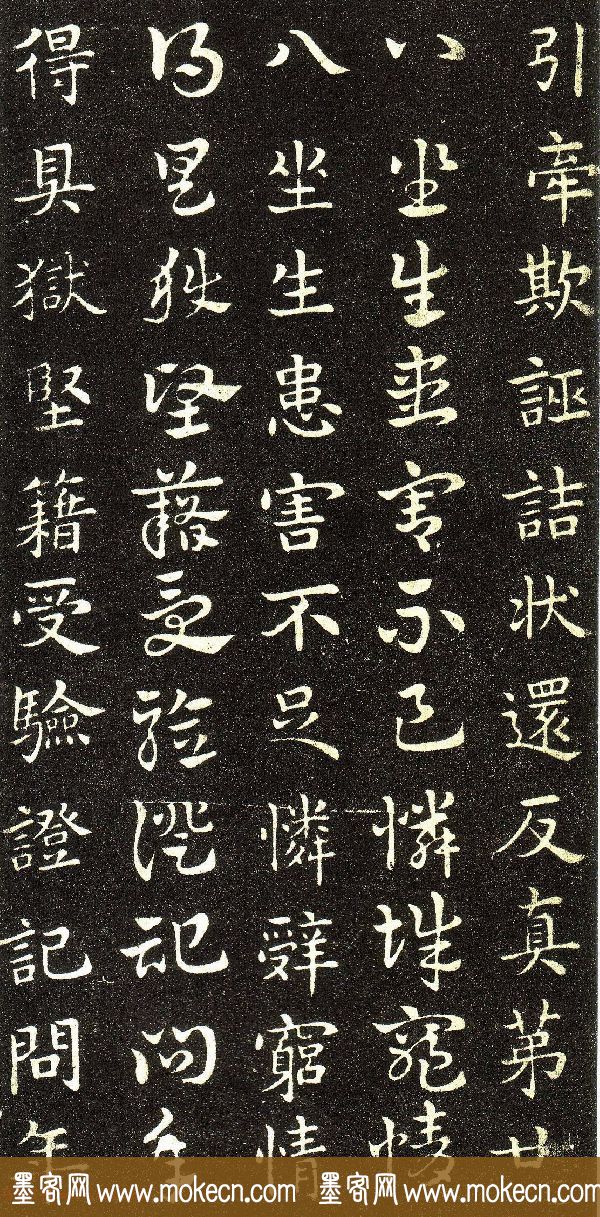 引牽欺誣詰状還反真苐廿
八坐生患害不足憐辭窮情
八坐生患害不足憐辭窮情
得具獄堅藉受驗證記問年
得具獄堅籍受驗證記問年
墨客网 www.mokecn.com 墨客网 www.mokecn.com